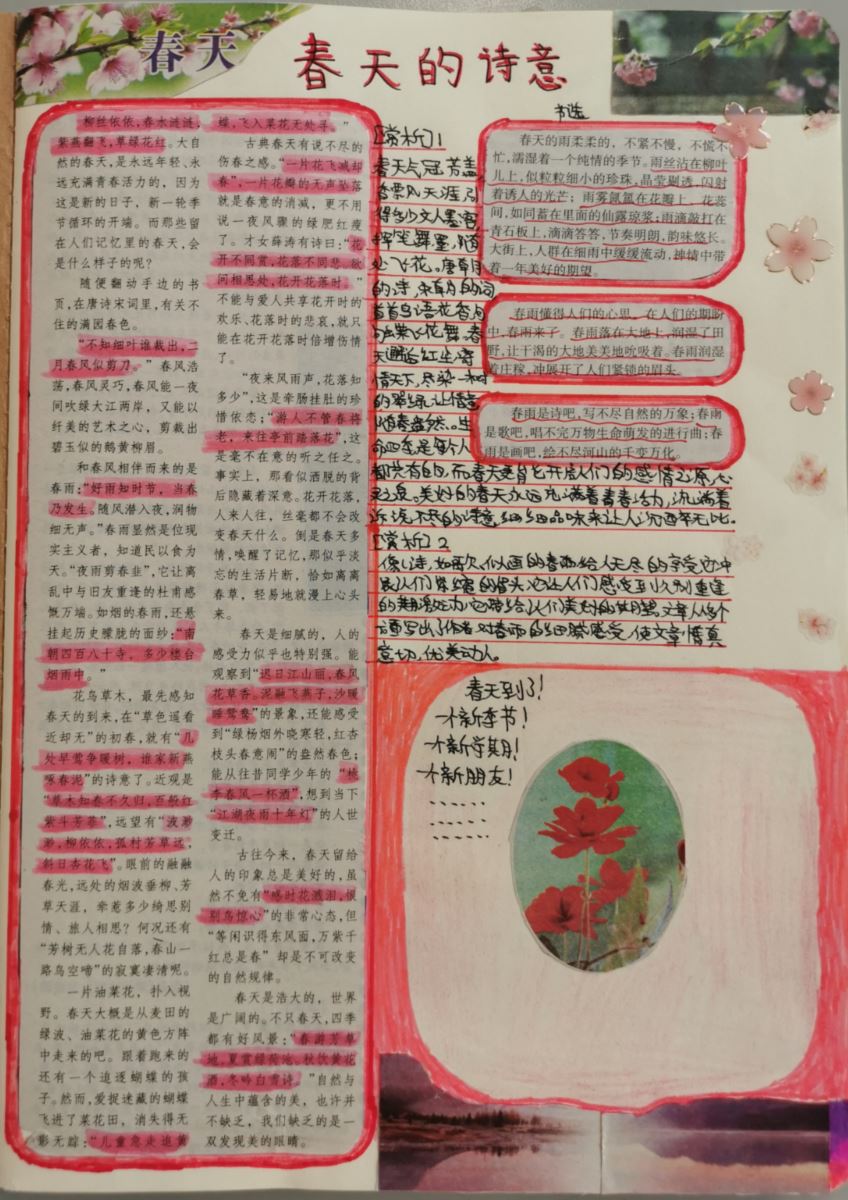 春天
春天的诗意
书选
柳丝依依，春水涟涟，
紫燕翻飞，草绿花红。大自
然的春天，是永远年轻、永
远充满青春活力的，因为
这是新的日子，新一轮季
节循环的开端。而那些留
在人们记忆里的春天，会
是什么样子的呢？
随便翻动手边的书
页，在唐诗宋词里，有关不
住的满园春色。
“不知细叶谁裁出，二
月春风似剪刀。”春风浩
荡，春风灵巧，春风能一夜
间吹绿大江两岸，又能以
纤美的艺术之心，剪裁出
碧玉似的鹅黄柳眉。
和春风相伴而来的是
春雨：“好雨知时节，当春
乃发生。随风潜入夜，润物
细无声。”春雨显然是位现
实主义者，知道民以食为
天。“夜雨剪春韭”，它让离
乱中与旧友重逢的杜甫感
慨万端。如烟的春雨，还悬
挂起历史朦胧的面纱：“南
朝四百八十寺，多少楼台
烟雨中。”
花鸟草木，最先感知
春天的到来，在“草色遥看
近却无”的初春，就有“几
处早莺争暖树，谁家新燕
啄春泥”的诗意了。近观是
“草木知春不久归，百般红
紫斗芳菲”，远望有“波渺
渺，柳依依，孤村芳草远，
斜日杏花飞”。眼前的融融
春光，远处的烟波垂柳、芳
草天涯，牵惹多少绮思别
情、旅人相思？何况还有
“芳树无人花自落，春山一
路鸟空啼”的寂寞凄清呢。
一片油菜花，扑入视
野。春天大概是从麦田的
绿波、油菜花的黄色方阵
中走来的吧。跟着跑来的
还有一个追逐蝴蝶的孩
子。然而，爱捉迷藏的蝴蝶
飞进了菜花田，消失得无
影无踪：“儿童急走追黄
蝶，飞入菜花无处寻。”
古典春天有说不尽的
伤春之感。“一片花飞减却
春”，一片花瓣的无声坠落
就是春意的消减，更不用
说一夜风骤的绿肥红瘦
了。才女薛涛有诗曰：“花
开不同赏，花落不同悲。欲
问相思处，花开花落时。”
不能与爱人共享花开时的
欢乐、花落时的悲哀，就只
能在花开花落时倍增伤情
了。
“夜来风雨声，花落知
多少”，这是牵肠挂肚的珍
惜依恋；“游人不管春将
老，来往亭前踏落花”，这
是毫不在意的听之任之。
事实上，那看似洒脱的背
后隐藏着深意。花开花落，
人来人往，丝毫都不会改
变春天什么。倒是春天多
情，唤醒了记忆，那似乎淡
忘的生活片断，恰如离离
春草，轻易地就漫上心头
来。
春天是细腻的，人的
感受力似乎也特别强。能
观察到“迟日江山丽，春风
花草香。泥融飞燕子，沙暖
睡鸳鸯”的景象，还能感受
到“绿杨烟外晓寒轻，红杏
枝头春意闹”的盎然春色；
能从往昔同学少年的“桃
李春风一杯酒”，想到当下
“江湖夜雨十年灯”的人世
变迁。
古往今来，春天留给
人的印象总是美好的，虽
然不免有“感时花溅泪，恨
别鸟惊心”的非常心态，但
“等闲识得东风面，万紫千
红总是春”却是不可改变
的自然规律。
春天是浩大的，世界
是广阔的。不只春天，四季
都有好风景：“春游芳草
地，夏赏绿荷池。秋饮黄花
酒，冬吟白雪诗。”自然与
人生中蕴含的美，也许并
不缺乏，我们缺乏的是一
双发现美的眼睛。
[赏析]1
香飘风天涯，引
得多少文人墨客
挥笔舞墨，随
处飞花。唐
的诗，宋
首鸟语花香，
飞花舞。春
情天下，尽染一树
的翠绿，让情意
随春盎然。生
命四季是每个人
都会有的，而春天更能开启人们的感情之源，
之泉。美好的春天永远充满着青春活力，流淌着
诉说不尽的诗意，细细品味来让人沉醉无比。
春天的雨柔柔的，不紧不慢，不慌不
忙，濡湿着一个纯情的季节。雨丝沾在柳叶
儿上，似粒粒细小的珍珠，晶莹剔透，闪射
着诱人的光芒；雨雾氤氲在花瓣上、花蕊
间，如同蓄在里面的仙露琼浆；雨滴敲打在
青石板上，滴滴答答，节奏明朗，韵味悠长。
大街上，人群在细雨中缓缓流动，神情中带
着一年美好的期望。
春雨懂得人们的心思。在人们的期盼
中，春雨来了。春雨落在大地上，润湿了田
野，让干渴的大地美美地吮吸着。春雨润湿
着庄稼，冲展开了人们紧锁的眉头。
春雨是诗吧，写不尽自然的万象；春雨
是歌吧，唱不完万物生命萌发的进行曲；春
雨是画吧，绘不尽河山的千变万化。
[赏析]2
像诗，如歌，似画的春雨给人无尽的享受，它冲
展人们紧缩的眉头，它让人们感受到久别重逢
的期盼，它带给人们美好的期望，文章从多个
方面写出了作者对春雨的细腻感受，使文章情真
意切，优美动人。
春天到了！
一个新季节！
一个新学期！
一个新朋友！
……
……
……